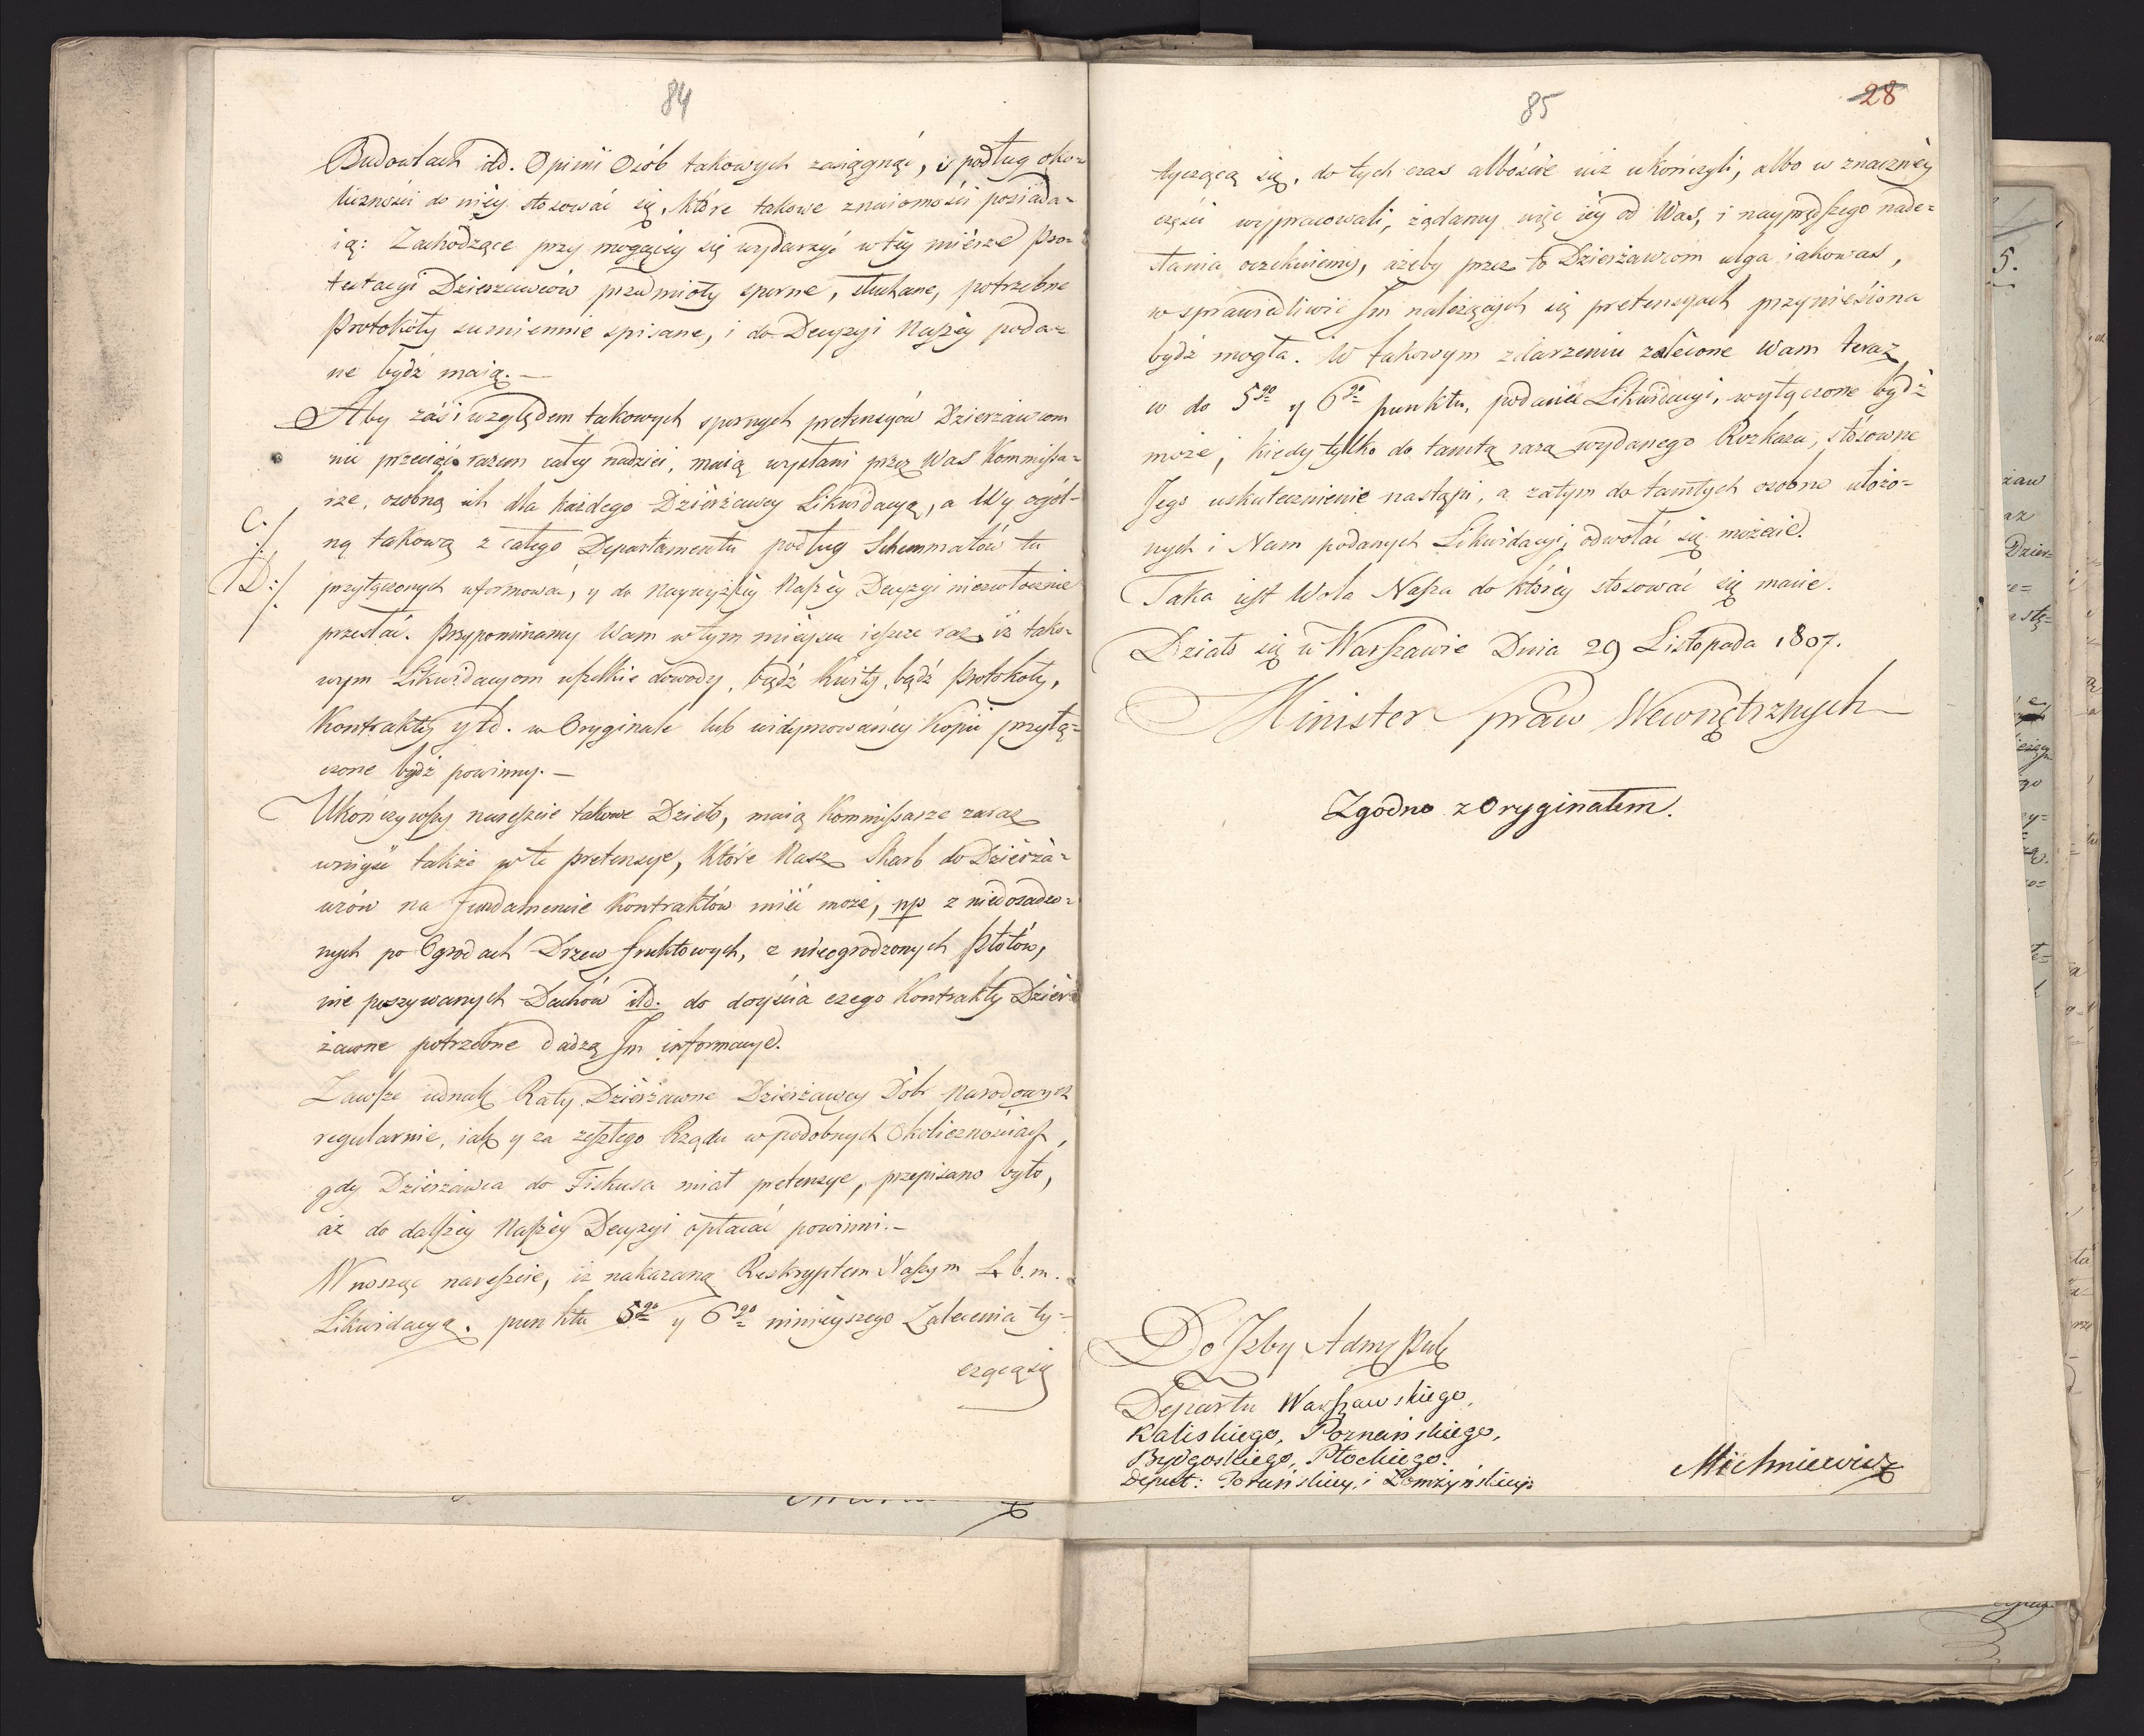 84
Budowlach itd. Opinii Osób takowych zasiągnąć, i podług oko-
liczności do niéy stosować się, które takowe znaiomości posiada-
ią: Zachodzące przy mogącéy się wydarzyć w téy mierze Pro-
testacyi Dzierzawców przedmioty sporne, słuchane, potrzebne
Protokóły sumiennie spisane, i do Decyzyi Naszéy poda-
ne bydź maią. —
Aby zaś względem takowych spornych pretensyów Dzierzawcom
nie przeciąć razem całéy nadziei, maią wysłani przez Was Kommissa-
rze, osobną ich dla każdego Dzierżawcy Likwidacyą, a Wy ogól-
C:/.
ną takową z całego Departamentu podług Schemmatów tu
D:/.
przyłączonych uformować, y do Naywyższéy Naszéy Decyzyi niezwłocznie
przesłać. Przypominamy Wam w tym mieyscu ieszcze raz, iż tako-
wym Likwidacyom wszelkie dowody, bądź Kwity, bądź Protokóły,
Kontrakty ytd. w Oryginale lub widymowanéy Kopii przyłą-
czone bydź powinny. —
Ukończywszy nareszcie takowe Dzieło, maią Kommissarze zaraz
wniyść także w te pretensye, które Nasz Skarb do Dzierża-
wców na fundamencie Kontraktów mieć może, np z niedosadzo-
nych po Ogrodach Drzew fruktowych, z nieogrodzonych Płotów,
nie poszywanych Dachów itd. do doyścia czego Kontrakty Dzier-
żawne potrzebne dadzą Im informacye.
Zawsze iednak Raty Dzierżawne Dzierżawcy Dóbr Narodowych
regularnie, iak y za zeszłego Rządu w podobnych Okolicznościach,
gdy Dzierżawca do Fiskusa miał pretensye, przepisano było,
aż do dalszéy Naszéy Decyzyi opłacać powinni. —
Wnosząc nareszcie, iż nakazaną Reskryptem Naszym b. m.
Likwidacyą, punktu 5go y 6go ninieyszego Zalecenia ty-
czącą się
85
28
tyczącą się, do tych czas albościé iuż ukończyli, albo w znacznéy
części wypracowali, żądamy więc iéy od Was, i nayprędszego nade-
słania oczekuiemy, ażeby przez to Dzierżawcom ulga iakowaś,
w sprawiedliwie Im należących się pretensyach przyniesiona
bydź mogła. W takowym zdarzeniu zalecone Wam teraz
w do 5go y 6go punktu, podanie Likwidacyi, wyłączone bydź
może, kiedy tylko do tamtą razą wydanego Rozkazu, stósowne
Jego uskutecznienie nastąpi, a zatym do tamtych osobno ułożo-
nych i Nam podanych Likwidacyi, odwołać się możecie.
Taka iest Wola Nasza do któréy stosować się macie.
Działo się w Warszawie Dnia 29 Listopada 1807.
Minister spraw Wewnętrznych
Zgodno z Oryginałem.
Do Izby Adm Pub
Departu Warszawskiego,
Kaliskiego, Poznańskiego,
Bydgoskiego, Płockiego.
Deput: Toruńskiey, i Łomżyńskiey
Michniewicz